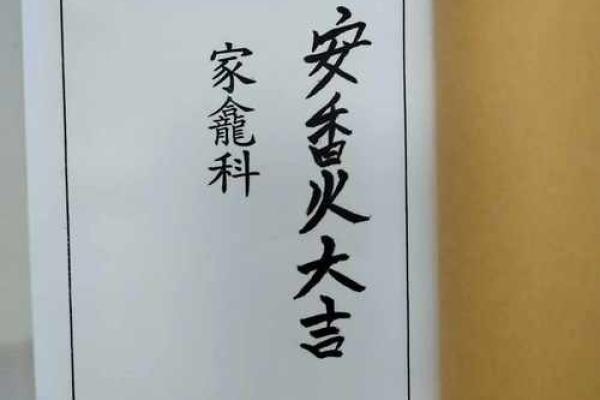 安香火大吉
家龕科